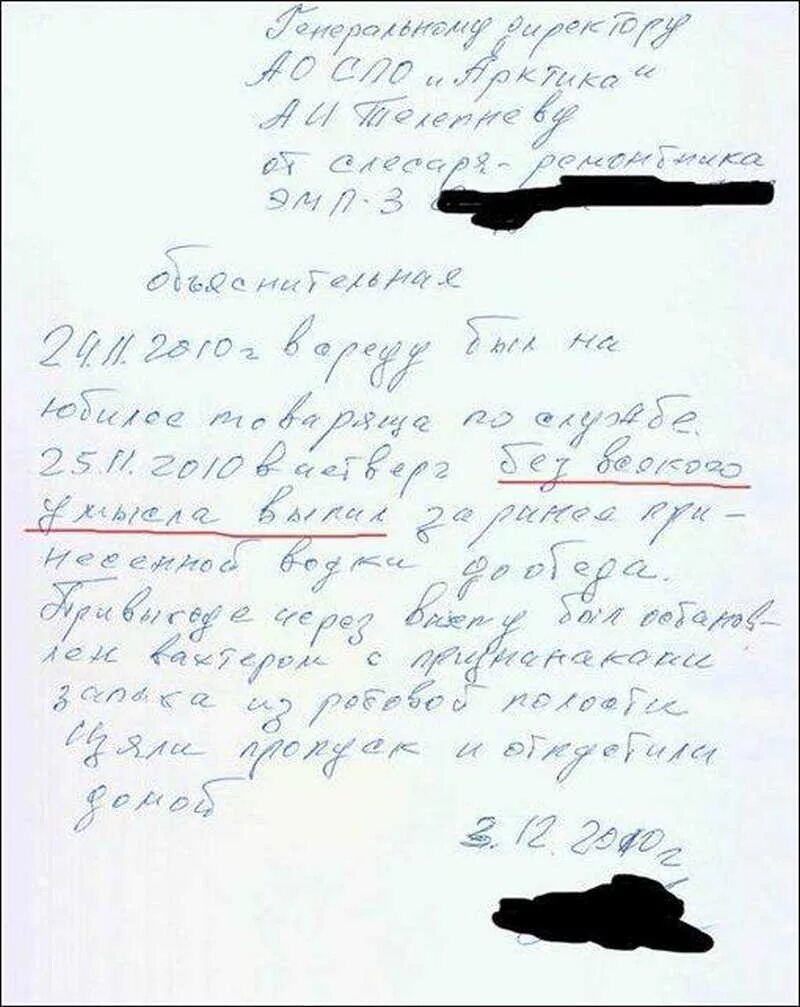 Генеральному директору
АО СПО "Арктика"
АИ Телепневу
от слесаря-ремонтника
ЭМП-3
объяснительная
24.11.2010г в среду был на
юбилее товаряща по службе.
25.11.2010 в четверг без всякого
умысла выпил заринее при-
несенной водки до обеда.
При выходе через вахту был останов-
лен вахтером с признанаками
запаха из ротовой полости
Изяли пропуск и отпустили
домой
3.12.2010г